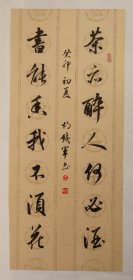 茶亦醉人何必酒
書能香我不須花
癸卯初夏